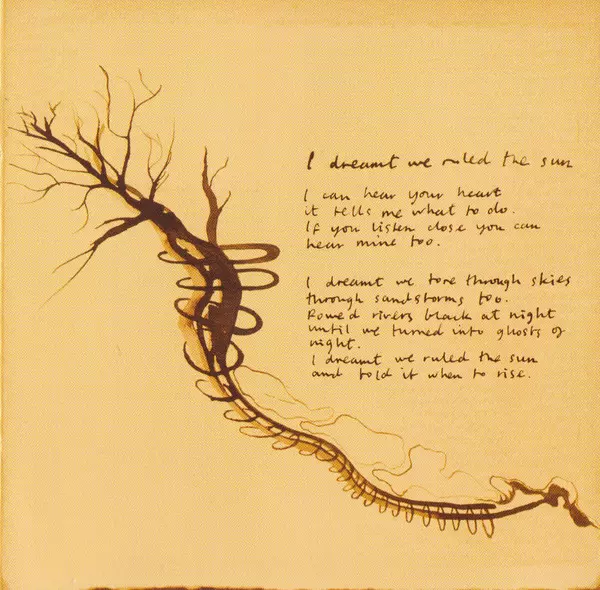 I dreamt we ruled the sun
I can hear your heart
it tells me what to do.
If you listen close you can
hear mine too.
I dreamt we tore through skies
through sandstorms too.
Rowed rivers black at night
until we turned into ghosts of
night.
I dreamt we ruled the sun
and told it when to rise.